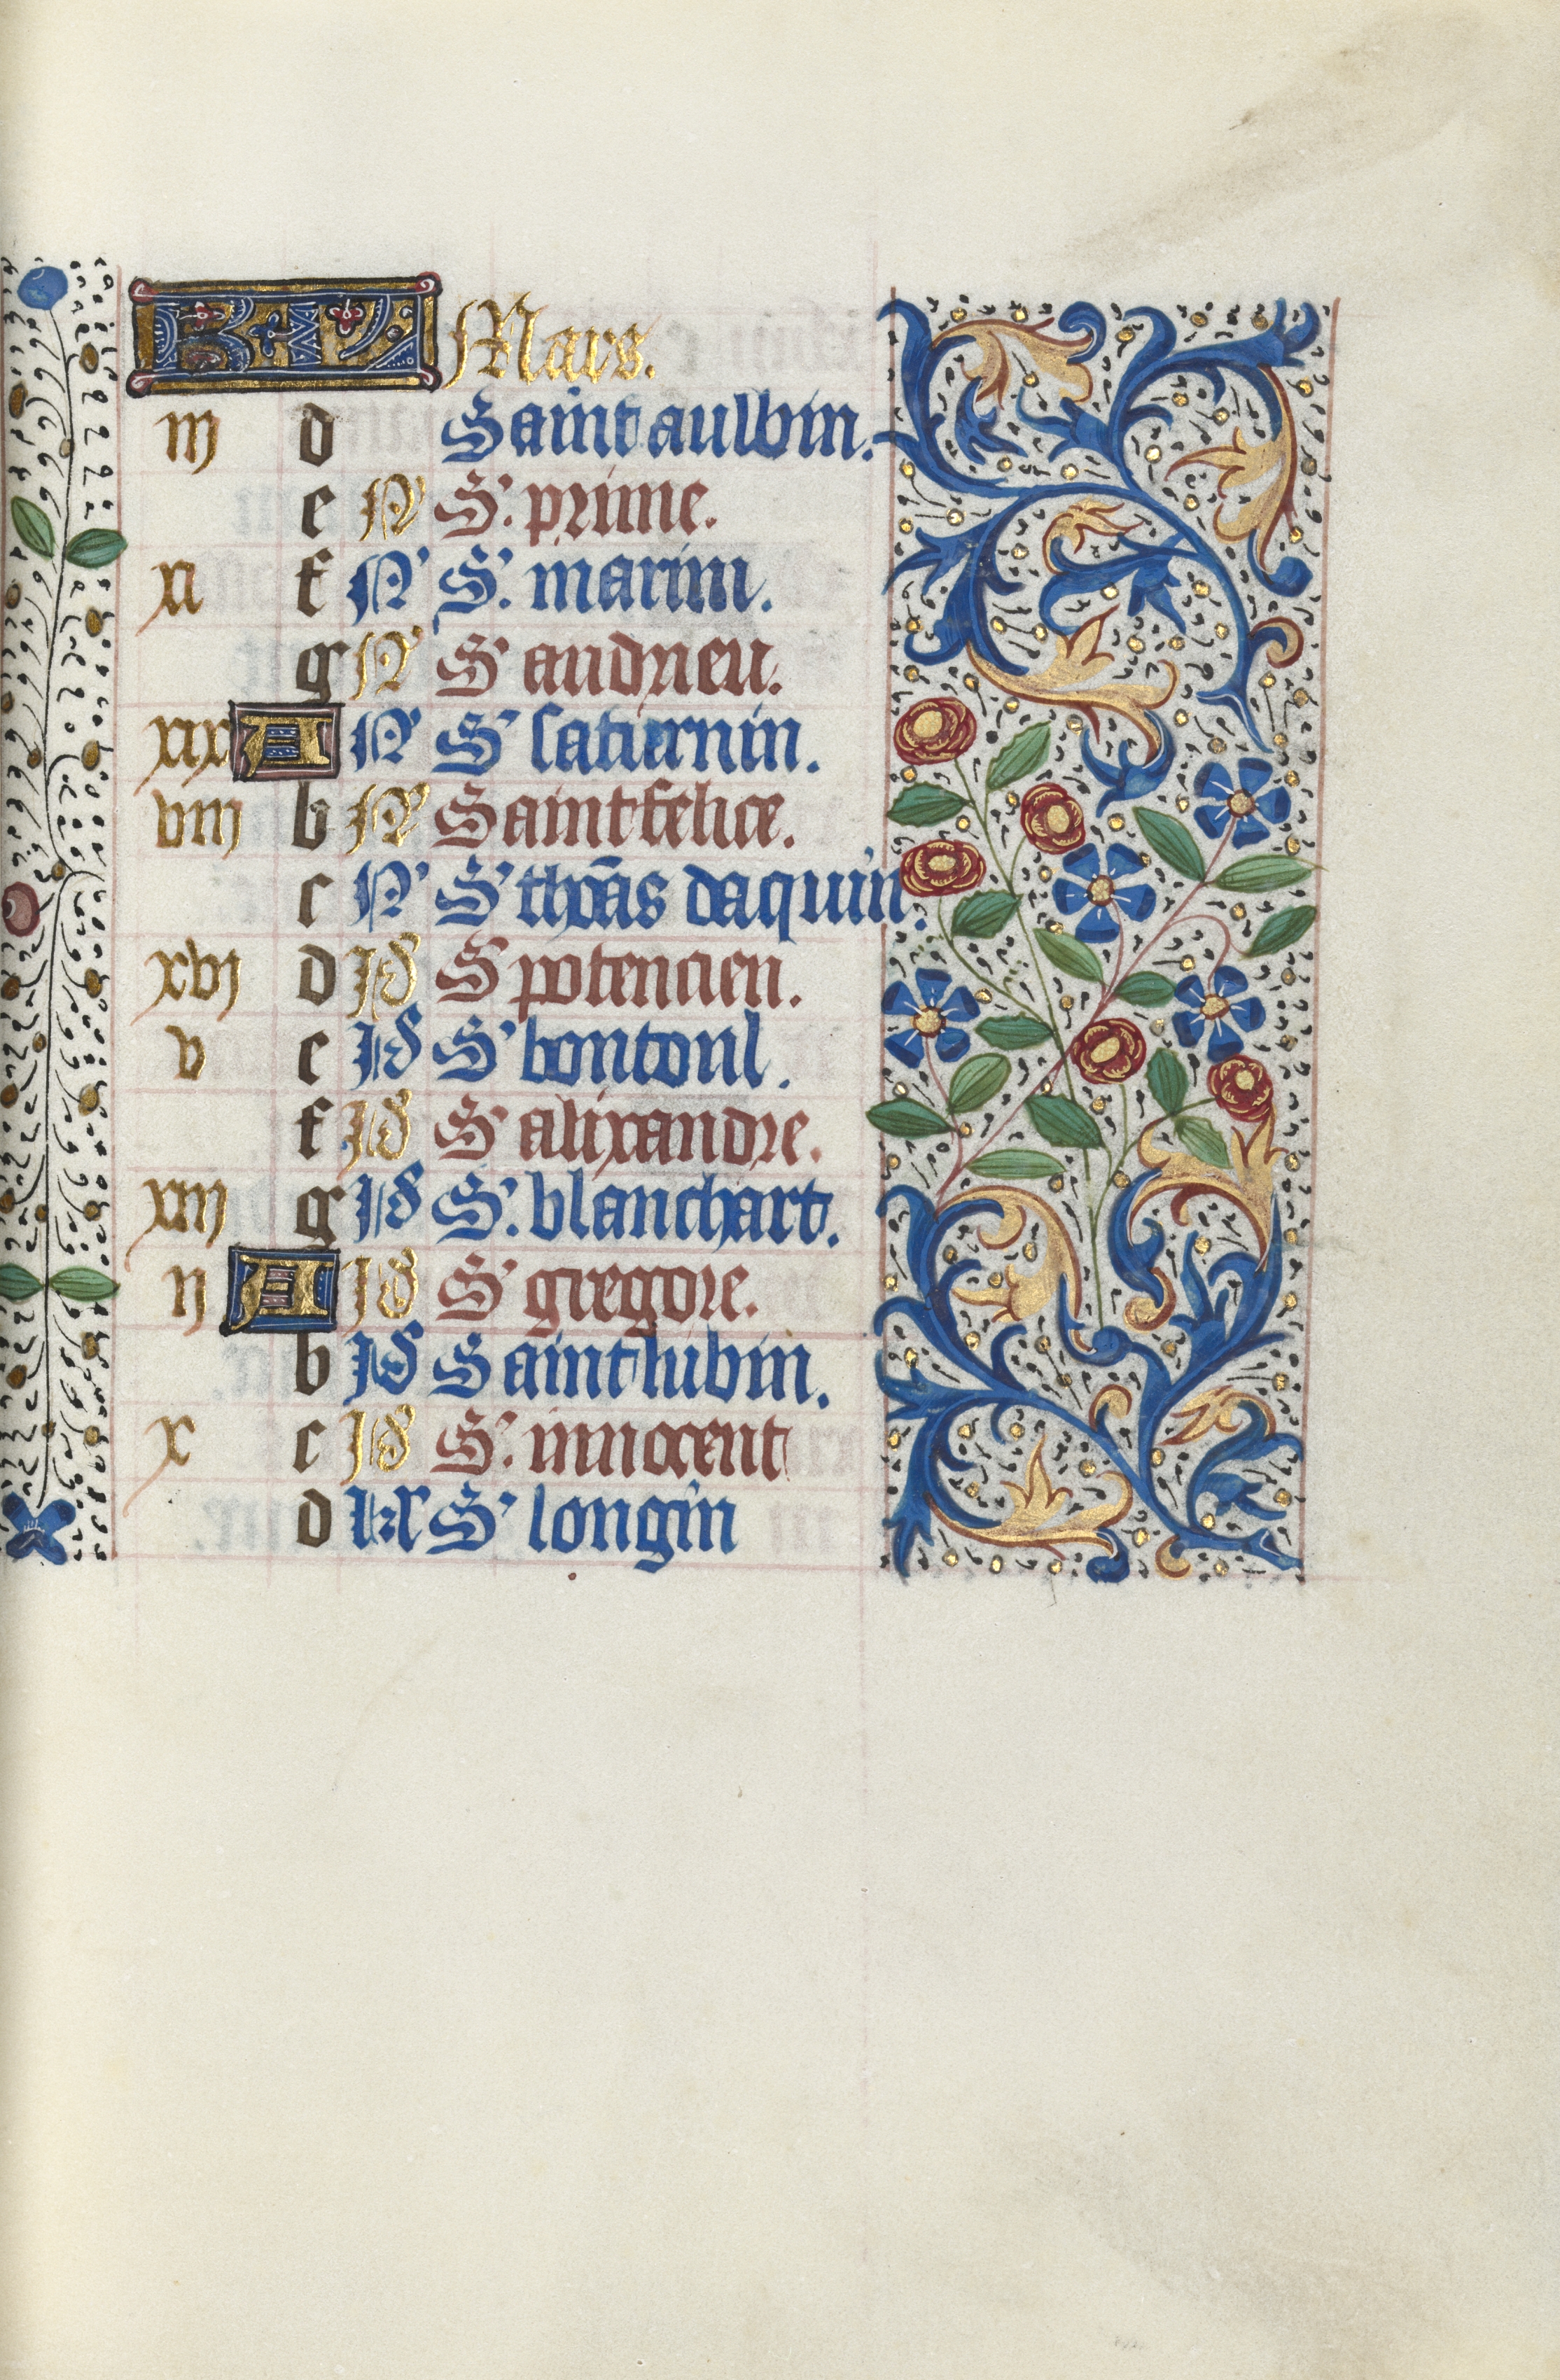 KL Mars.
iij d Saint aulbin.
e N S'. prime.
xi f N S'. marim.
g N S' andrieu.
xix A N S' saturnin.
viij b N Saint felice.
c N S' thõas daquin.
xvj d Id S' potencien.
v e Id S' bontoul.
f Id S' alixandre.
xiij g Id S'. blanchart.
ij A Id S' gregore.
b Id Saint lubin.
x c Id S'. innocent
d kl S' longin